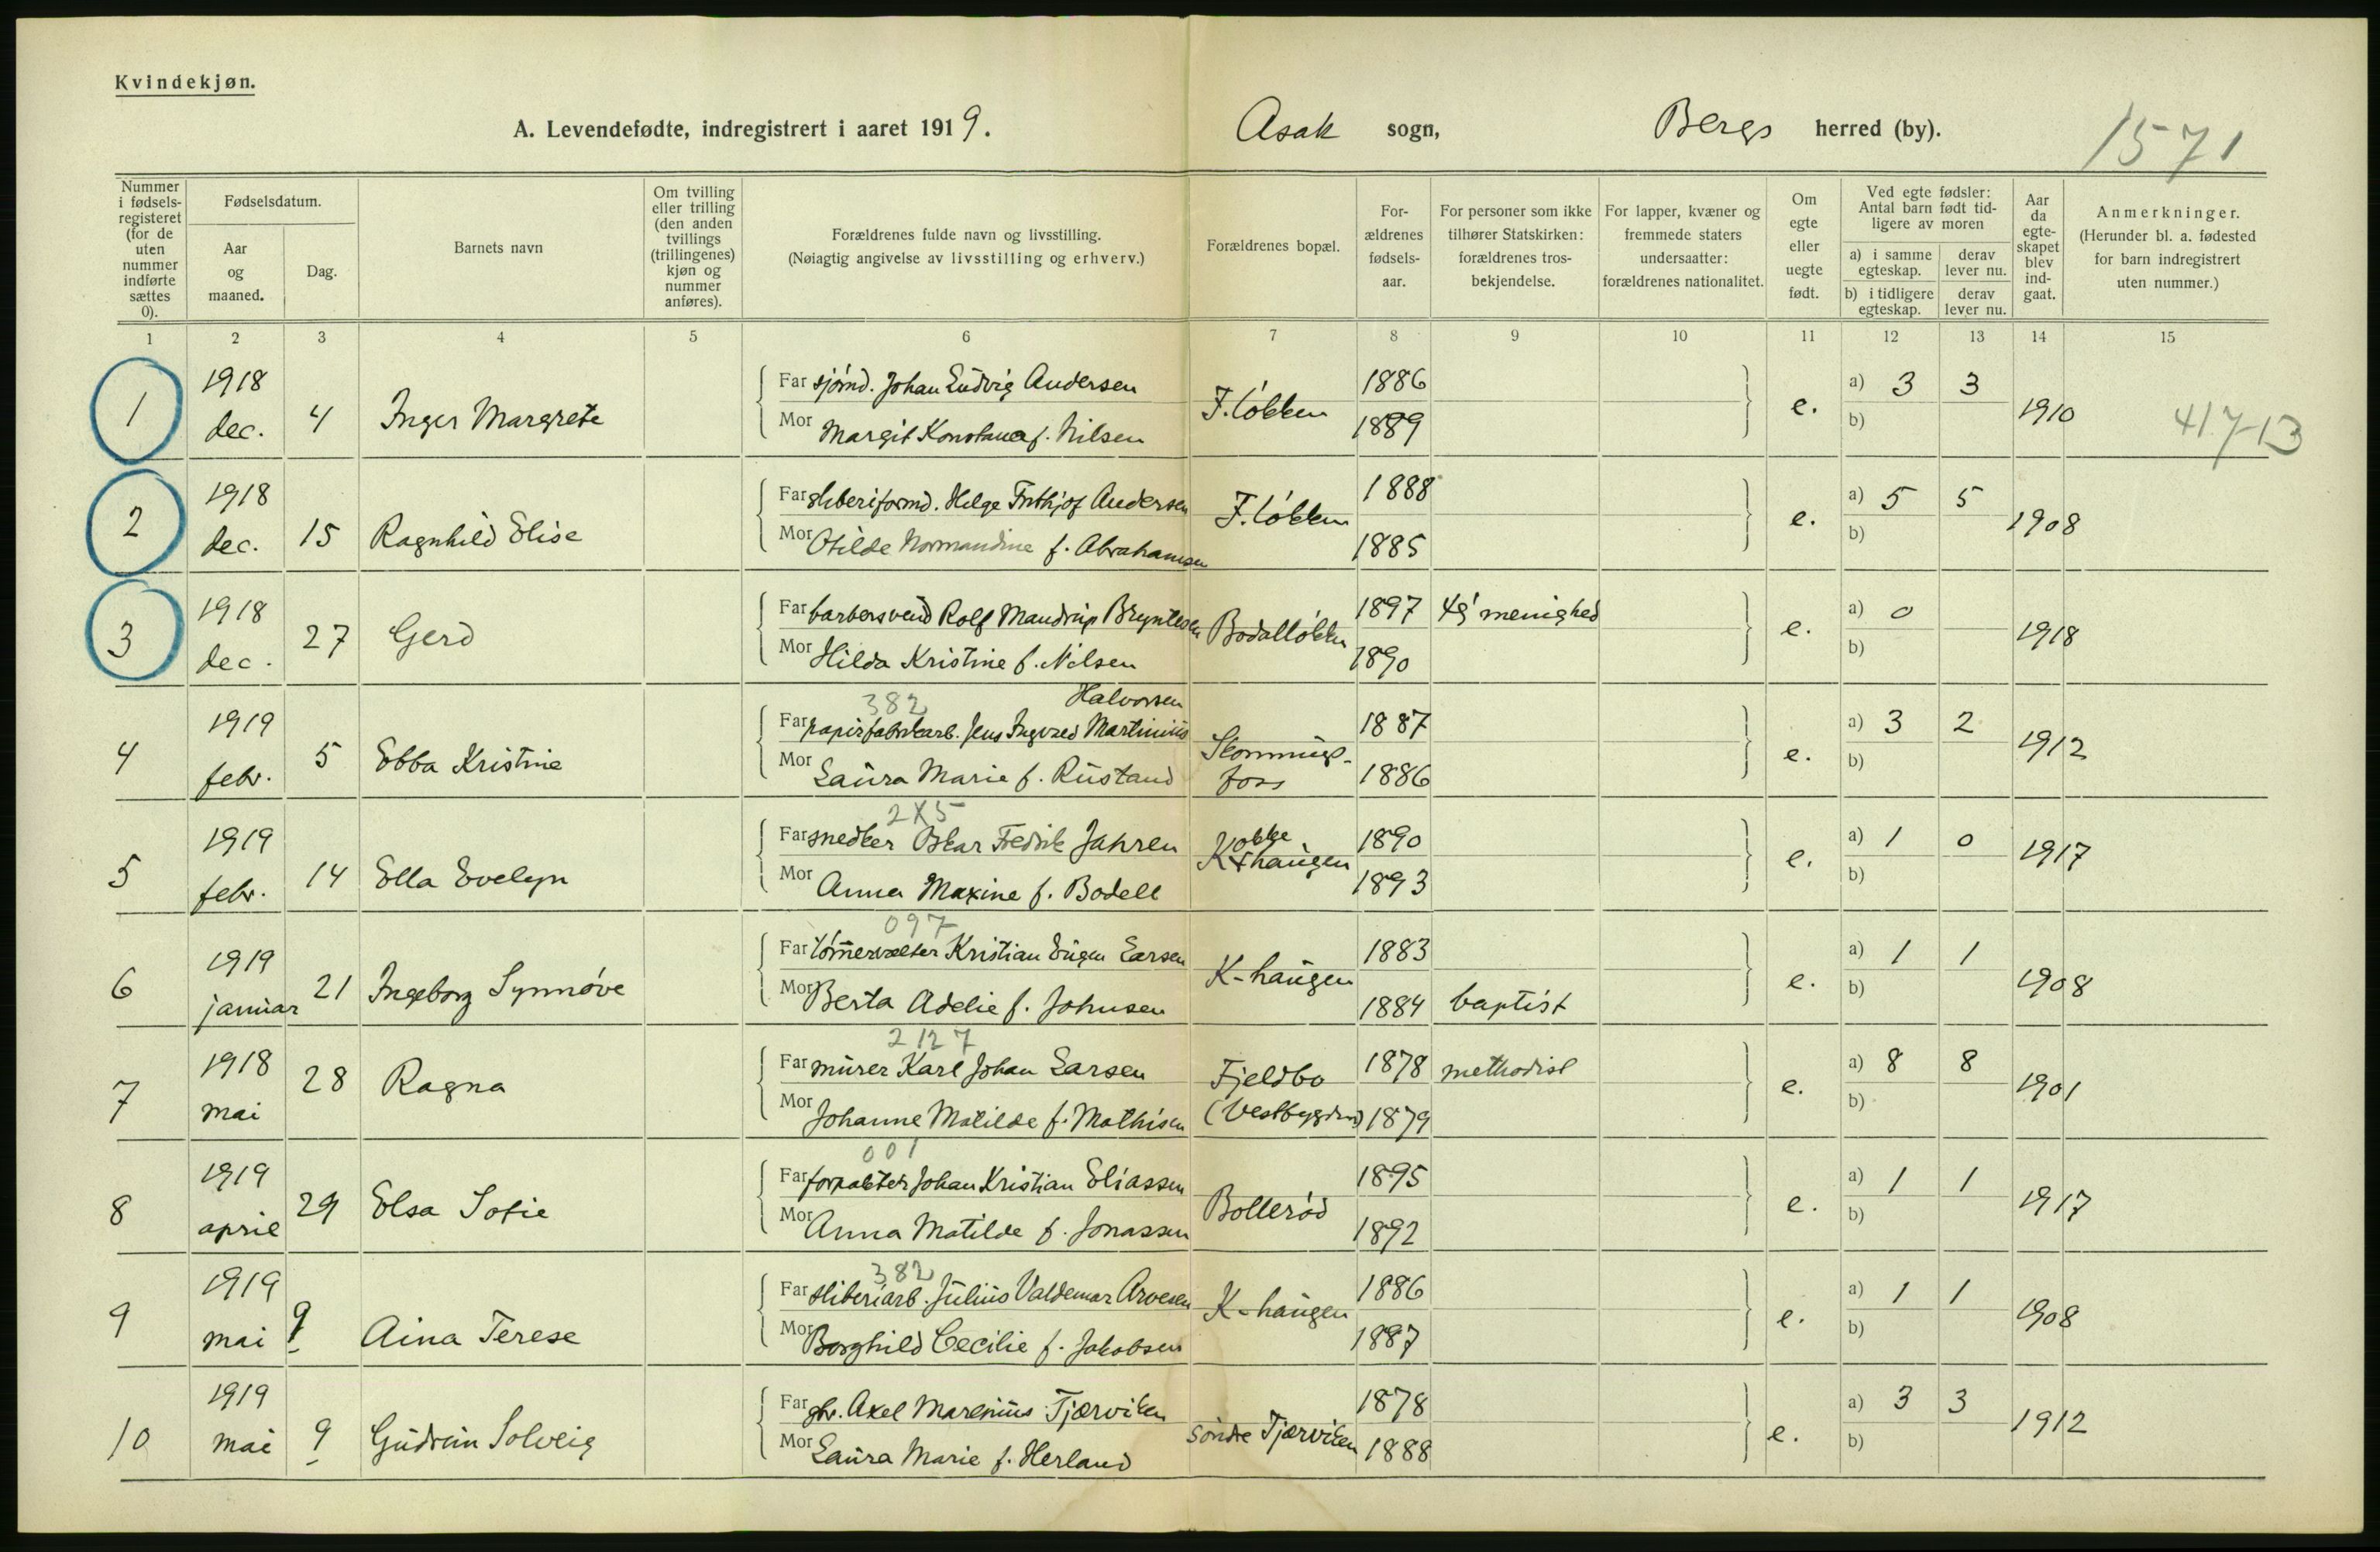 Kvindekjøn.
A. Levendefødte, indregistrert i aaret 1919. Asak sogn, Bergs herred (by).
1571
Nummer i fødsels-registeret (for de uten nummer indførte sættes 0).
Fødselsdatum.
Aar og maaned.
Dag.
Barnets navn
Om tvilling eller trilling (den anden tvillings (trillingenes) kjøn og nummer anføres).
Forældrenes fulde navn og livsstilling.
(Nøiagtig angivelse av livsstilling og erhverv.)
Forældrenes bopæl.
For-ældrenes fødsels-aar.
For personer som ikke tilhører Statskirken: forældrenes tros-bekjendelse.
For lapper, kvæner og fremmede staters undersaatter: forældrenes nationalitet.
Om egte eller uegte født.
Ved egte fødsler: Antal barn født tid-ligere av moren
a) i samme egteskap. derav lever nu.
b) i tidligere egteskap. derav lever nu.
Aar da egte-skapet blev ind-gaat.
Anmerkninger.
(Herunder bl. a. fødested for barn indregistrert uten nummer.)
1 2 3 4 5 6 7 8 9 10 11 12 13 14 15
1 1918 dec. 4 Inger Margrete
Far sjømd. Johan Ludvig Andersen F. løkken 1886 e. a) 3 3 1910
Mor Margit Konstance f. Nilsen 1889 b)
417-13
2 1918 dec. 15 Ragnhild Elise
Far sliberiformd. Helge Frithjof Andersen F. løkken 1888 e. a) 5 5 1908
Mor Otilde Normandine f. Abrahamsen 1885 b)
3 1918 dec. 27 Gerd
Far barbersvend Rolf Mandrup Bryntesen Bodalløkken 1897 menighed e. a) 0 1918
Mor Hilda Kristine f. Nilsen 1890 b)
4 1919 febr. 5 Ebba Kristine
382 Halvorsen
Far papirfabrikarb. Jens Ingvald Martinius Skonnings-foss 1887 e. a) 3 2 1912
Mor Laura Marie f. Rustand 1886 b)
5 1919 febr. 14 Ella Evelyn
2X5
Far snedker Oskar Fredrik Jahren Kokkehaugen 1890 e. a) 1 0 1917
Mor Anna Maxine f. Bodell 1893 b)
6 1919 januar 21 Ingeborg Synnøve
097
Far tømmervælter Kristian Eugen Larsen K-haugen 1883 e. a) 1 1 1908
Mor Berta Adelie f. Johnsen 1884 baptist b)
7 1918 mai 28 Ragna
2127
Far murer Karl Johan Larsen Fjeldbo 1878 methodist e. a) 8 8 1901
Mor Johanne Matilde f. Mathisen (Vestbygden) 1879 b)
8 1919 april 29 Elsa Sofie
001
Far forpakter Johan Kristian Eliassen Bollerød 1895 e. a) 1 1 1917
Mor Anna Matilde f. Jonassen 1892 b)
9 1919 mai 9 Aina Terese
382
Far sliberiarb. Julius Valdemar Arvesen K-haugen 1886 e. a) 1 1 1908
Mor Borghild Cecilie f. Jakobsen 1887 b)
10 1919 mai 9 Gudrun Solveig
Far gbr. Axel Marenius Tjærviken søndre Tjærviken 1878 e. a) 3 3 1912
Mor Laura Marie f. Herland 1888 b)